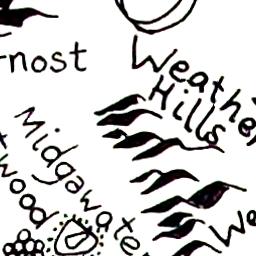 rnost
Weather
Hills
Midgewater
wood
We